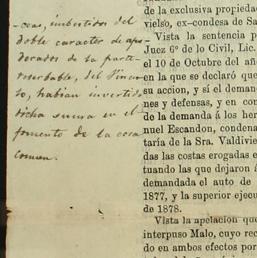 -ceas, imbertidos del
doble caracter de apo-
derados de su parte
habian invertido
dicha suma en el
fomento de la cosa
comun.
de la exclusiva propiedad
vielso, ex-condesa de Sa
Vista la sentencia p
Juez 6º de lo Civil, Lic.
el 10 de Octubre del añ
en la que se declaró que
su accion, y sí el deman
nes y defensas, y en con
de la demanda á los her
nuel Escandon, condena
taría de la Sra. Valdivie
das las costas erogadas e
tuando las que dejaron á
demandada el auto de
1877, y la superior ejecu
de 1878.
Vista la apelacion que
interpuso Malo, cuyo rec
do en ambos efectos por